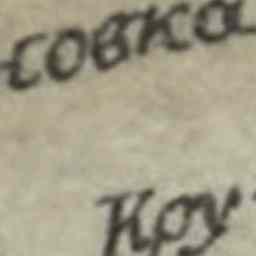 совка
Кру